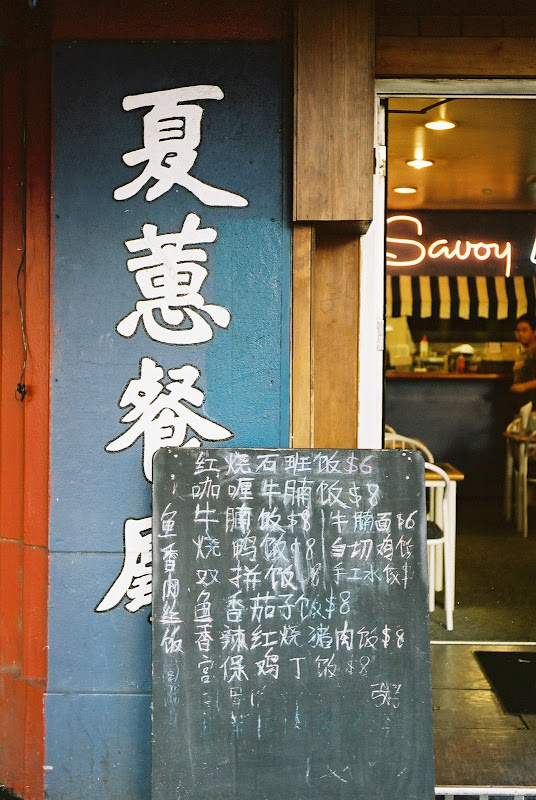 夏蕙餐廳
Savoy
红烧石班饭$6
咖喱牛腩饭$8
牛腩饭$8 牛腩面$6
烧鸭饭$8 白切鸡饭
双拼饭$8 手工水饺$
鱼香茄子饭$8
香辣红烧猪肉饭$8
宫保鸡丁饭$8
鱼香肉丝饭